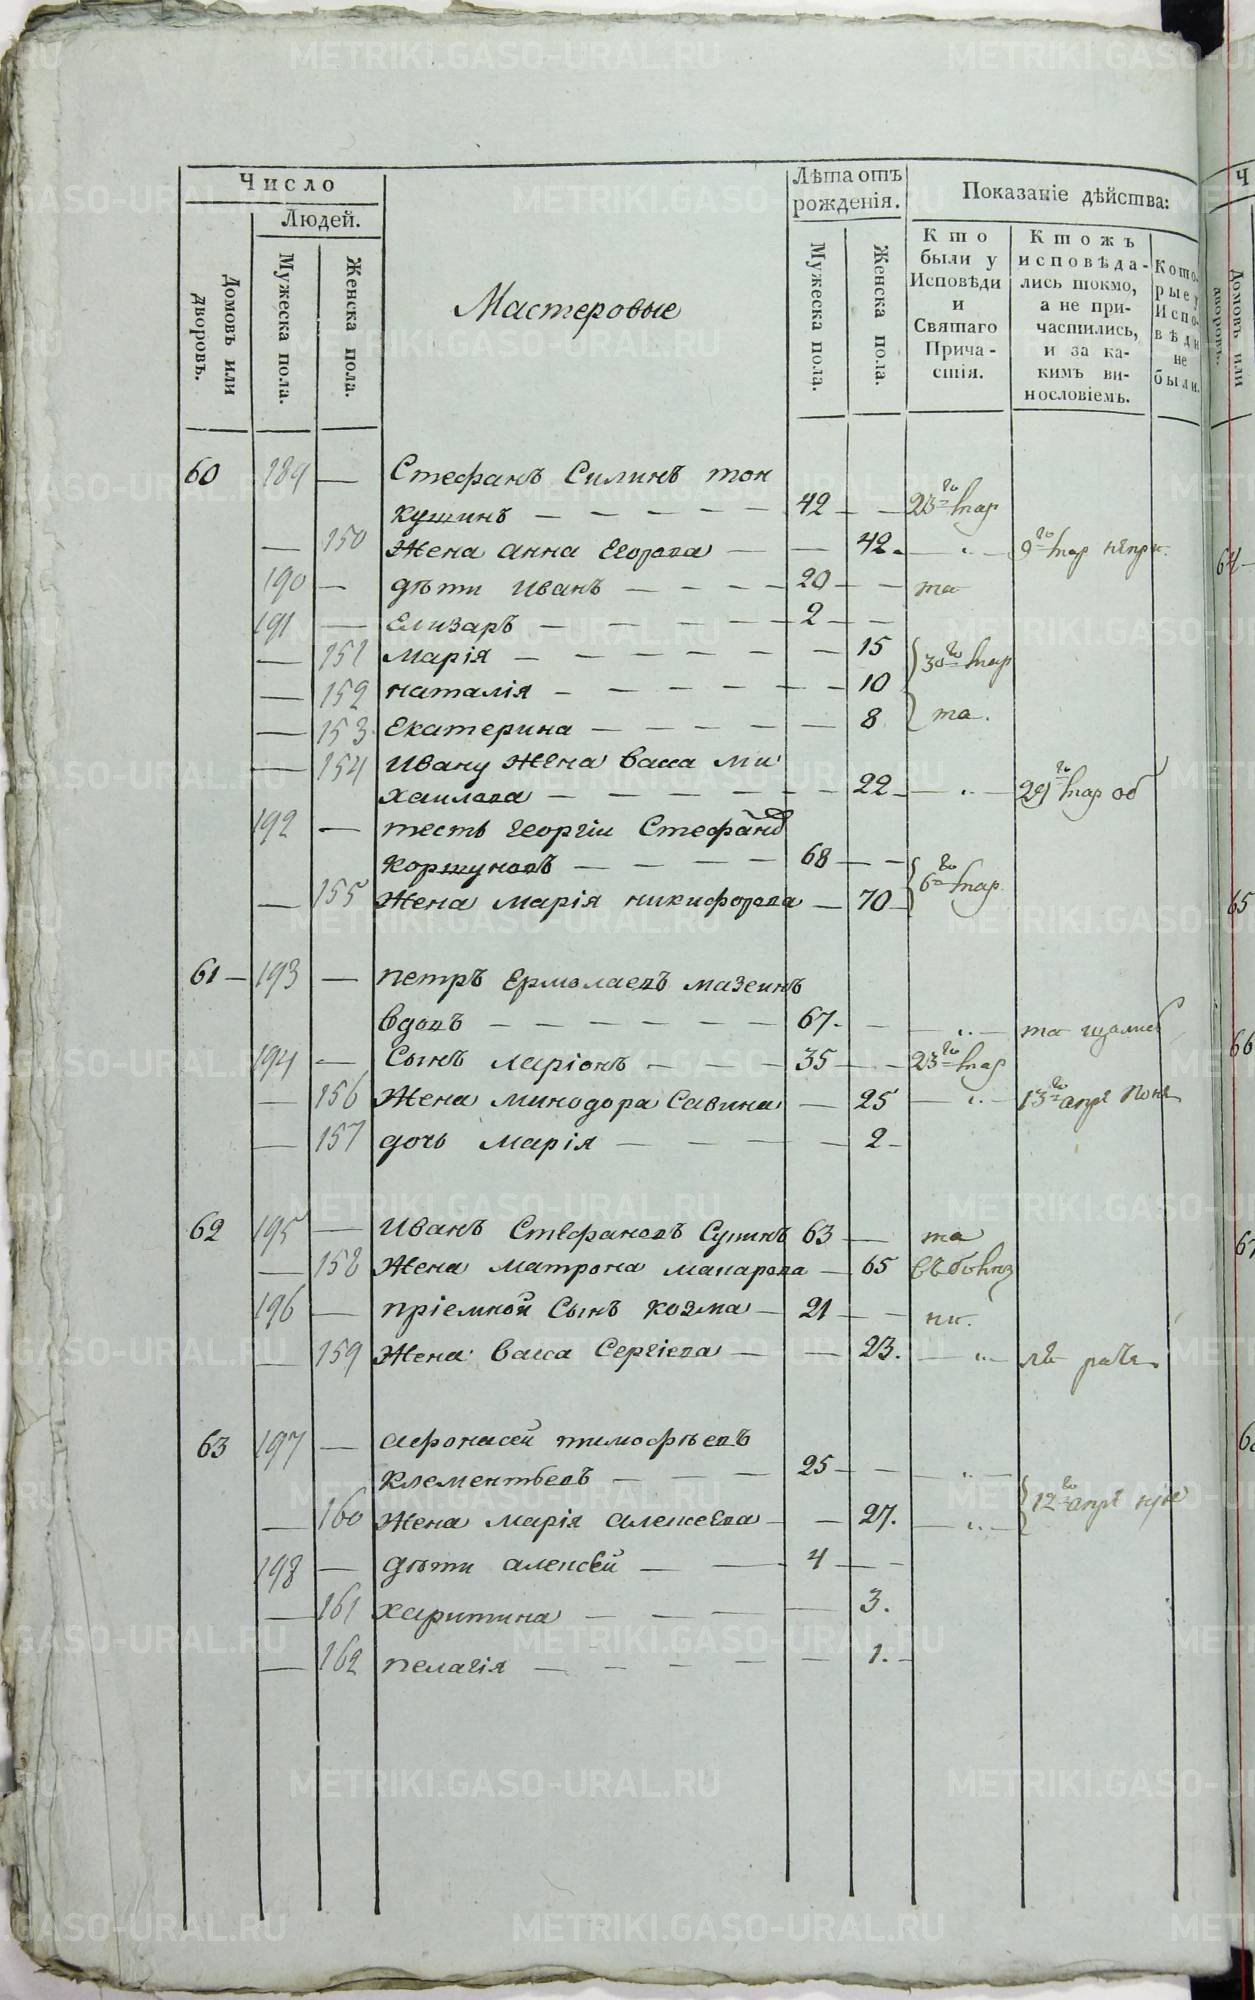 Число
Людей.
Домовъ или дворовъ.
Мужеска пола.
Женска пола.
Мастеровые
Лѣта отъ
рожденія.
Мужеска пола.
Женска пола.
Показаніе дѣйства:
Кто
были у
Исповѣди
и
Святаго
Прича-
стія.
Ктожъ
исповѣда-
лись токмо,
а не при-
частились,
и за ка-
кимъ ви-
нословіемъ.
Кото-
рые у
Испо-
вѣди
не
были.
60 189 — Стефанъ Силинъ тон
кушинъ 42 — 23го мар
— 150 Жена анна Егорова — 42 — 9го мар
190 — дѣти Иванъ 20 — та
191 — Елизаръ 2 —
— 151 Марія — 15 30го мар
— 152 наталія — 10
— 153 Екатерина — 8 та.
— 154 Ивану Жена васса ми
хаилова — 22 — 29 мар об
192 — тесть георгіи Стефановъ
коршуновъ 68 — 6го мар
— 155 Жена марія никифорова — 70
61 — 193 — петръ Ермолаевъ мазеинъ
вдовъ 67 — та
194 — Сынъ ларіонъ 35 — 23го мар
— 156 Жена минодора Савина — 25 — 13го апре
— 157 дочь марія — 2
62 195 — Иванъ Стефановъ Супинъ 63 — та
— 158 Жена матрона макарова — 65
196 — пріемной Сынъ козма 21 —
— 159 Жена васса Сергіева — 23. —
63 197 — афонасей тимофѣевъ
клементьевъ 25 — 12го апре
— 160 Жена марія алексеева — 27.
198 — дѣти алексѣй 4 —
— 161 харитина — 3.
— 162 пелагія — 1.
METRIKI.GASO-URAL.RU